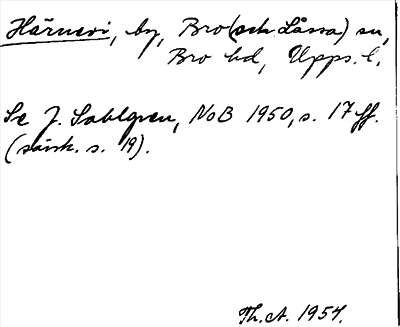 Härnevi, by, Bro (och Låssa) sn,
Bro hd, Upps. l.
Se J. Sahlgren, NoB 1950, s. 17 ff.
(särsk. s. 19).
Th. A. 1954.